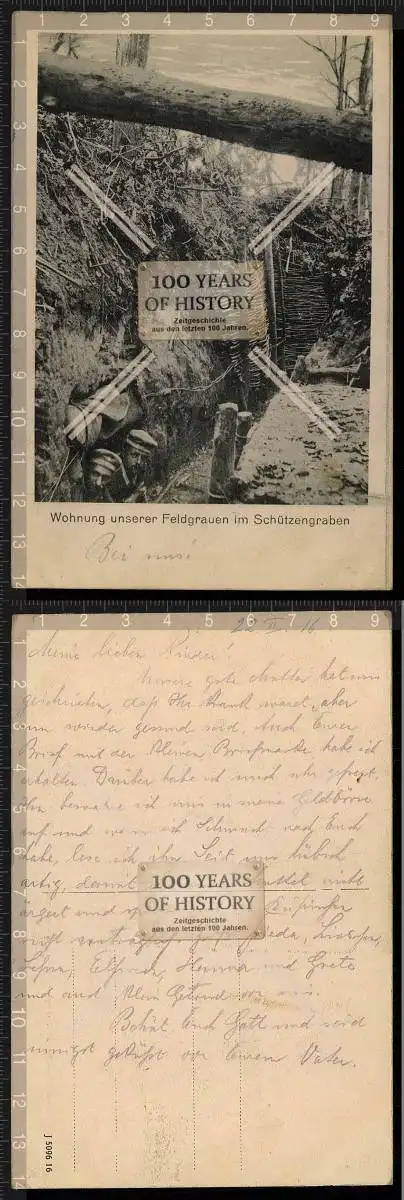 100 YEARS
OF HISTORY
Zeitgeschichte
aus den letzten 100 Jahren.
Wohnung unserer Feldgrauen im Schützengraben
Bei uns!
22. II. 16
Meine lieben Kinder!
Unsere gute Mutter hat mir
geschrieben, daß Ihr krank waret, aber
nun wieder gesund seid. Auch Euren
Brief mit der kleinen Briefmarke habe ich
erhalten. Darüber habe ich mich sehr gefreut.
Ihn bewahre ich mir in meine Geldbörse
auf und wenn ich Sehnsucht nach Euch
habe, lese ich ihn. Seid nur hübsch
artig, damit nicht
ärgert und
nicht
Elfriede, Hanna und Grete
und auch klein Gertrud von mir.
Behüt Euch Gott und seid
innigst geküßt von Eurem Vater.
100 YEARS
OF HISTORY
Zeitgeschichte
aus den letzten 100 Jahren.
J 5096 16